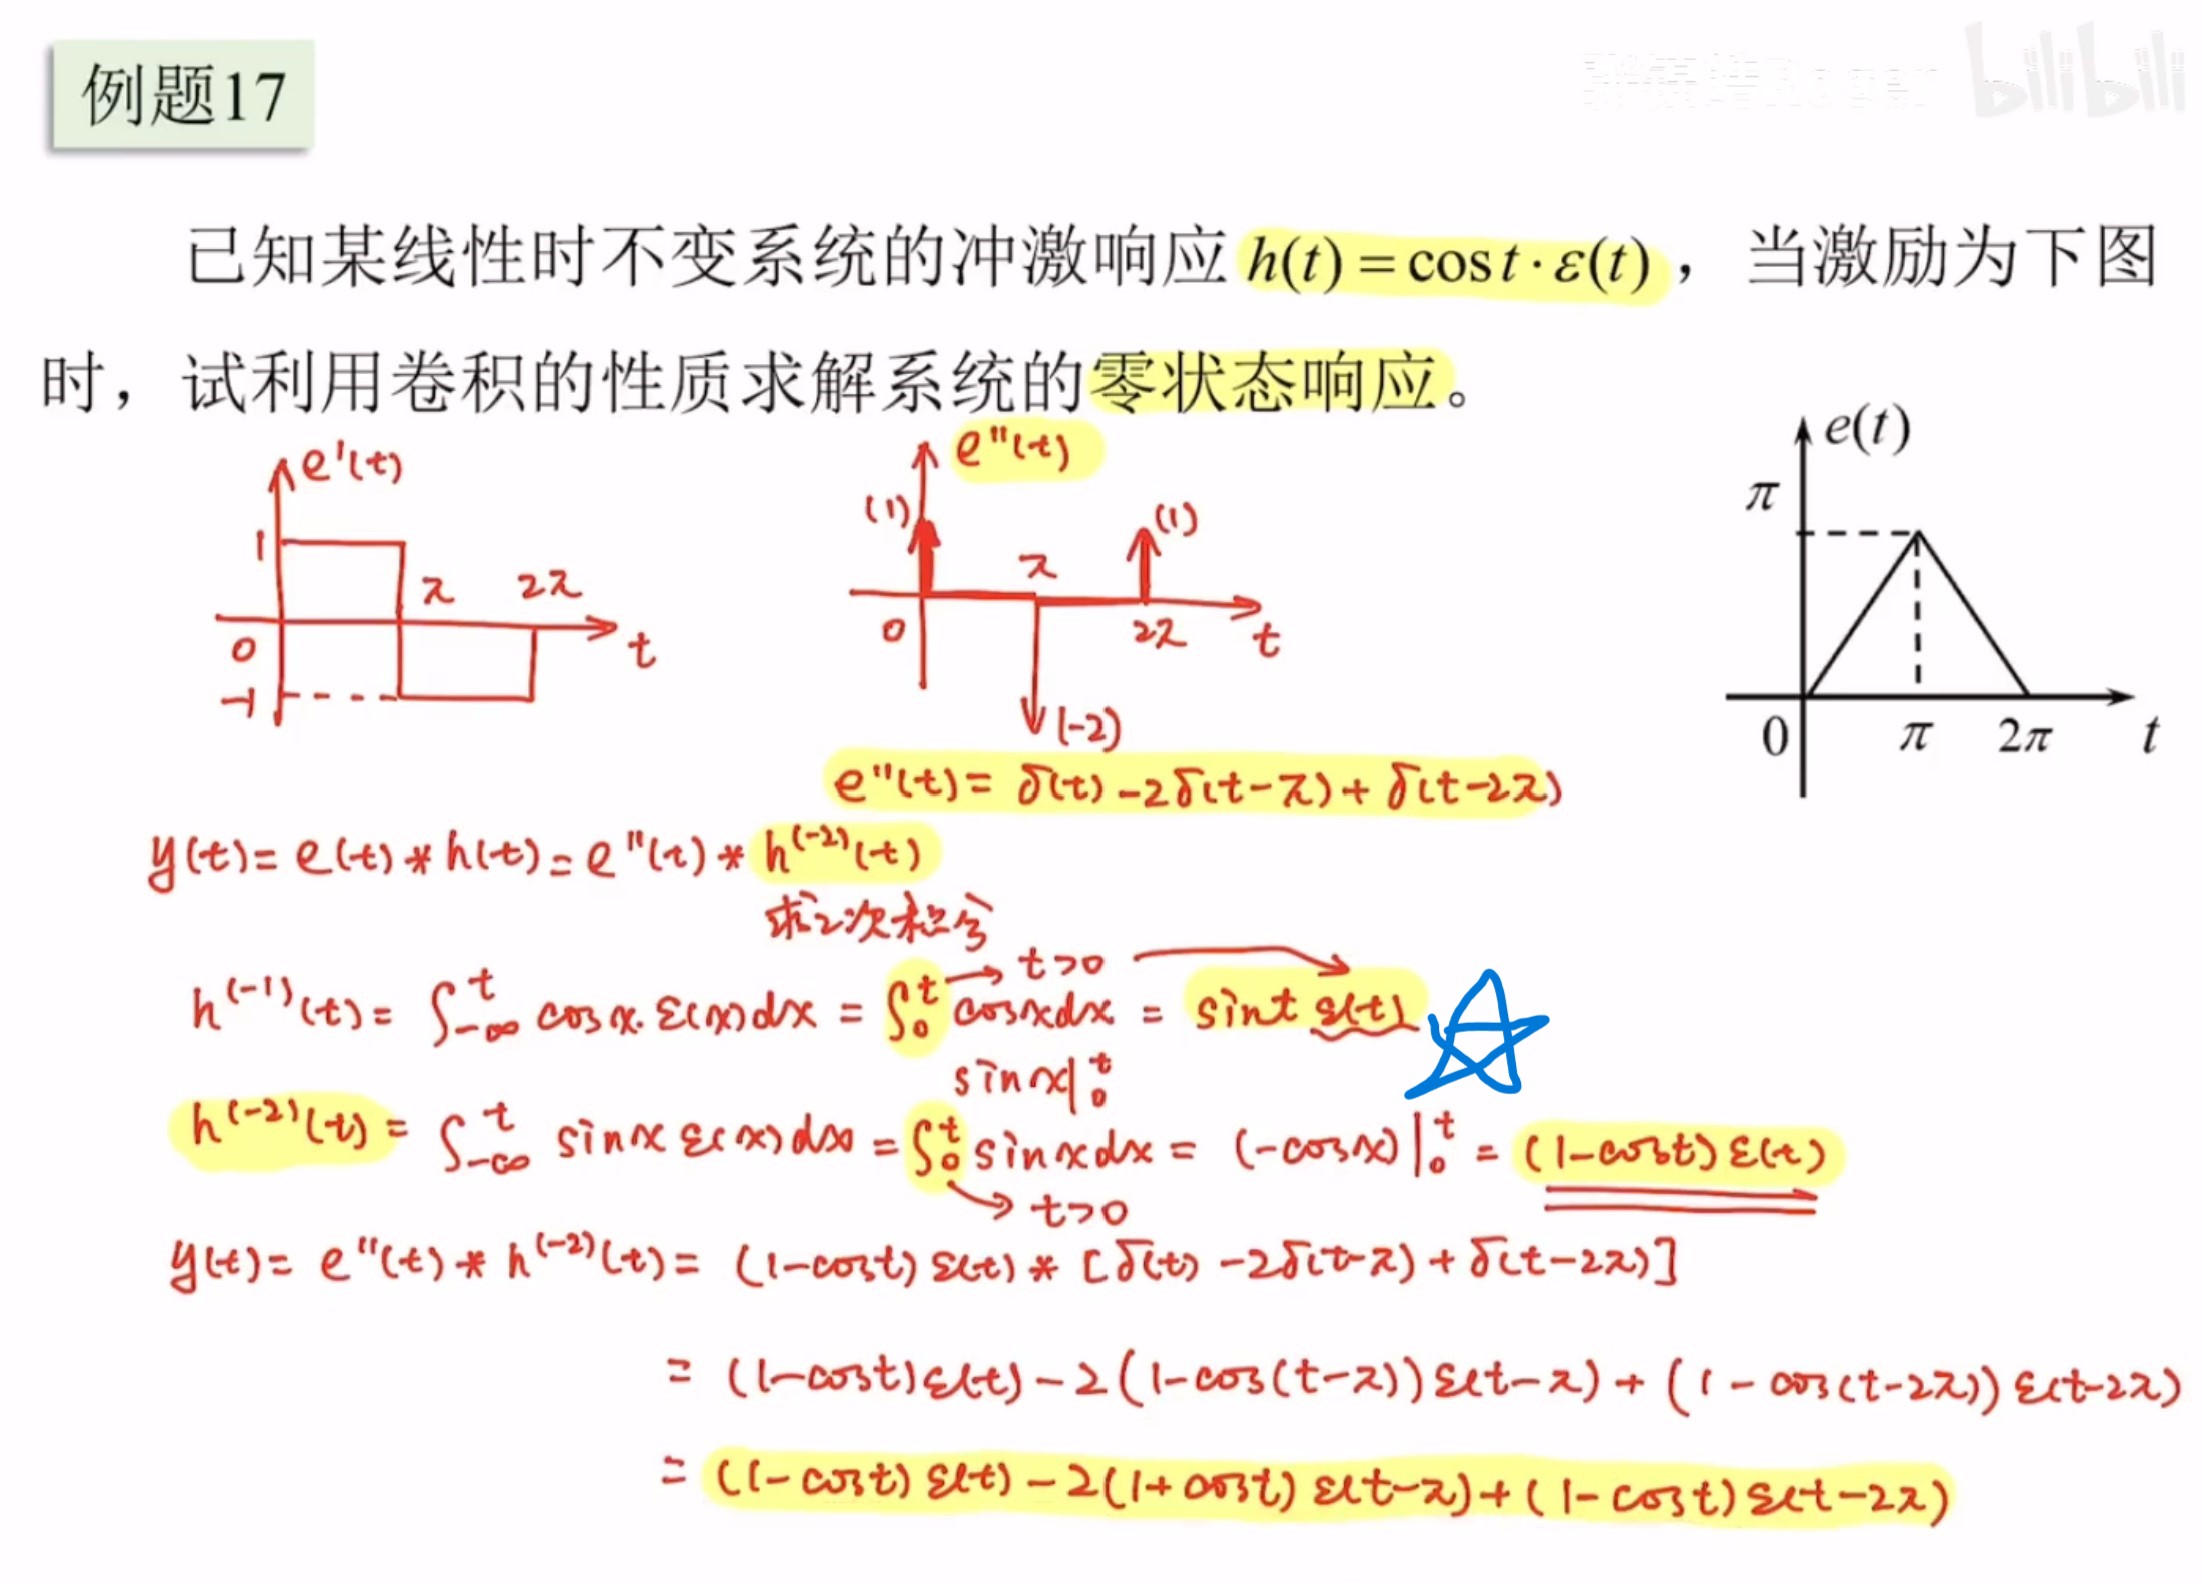 例题17
bilibili
已知某线性时不变系统的冲激响应 h(t) = cos t · ε(t) ，当激励为下图
时，试利用卷积的性质求解系统的零状态响应。
e'(t)
1
π 2π
0
t
-1
e''(t)
(1) (1)
π
0 2π t
(-2)
e(t)
π
0 π 2π t
e''(t) = δ(t) - 2δ(t-π) + δ(t-2π)
y(t) = e(t) * h(t) = e''(t) * h^(-2)(t)
求2次积分
t>0
h^(-1)(t) = ∫_{-∞}^{t} cosx·ε(x)dx = ∫_0^t cosxdx = sint ε(t)
sinx|_0^t
h^(-2)(t) = ∫_{-∞}^{t} sinx ε(x)dx = ∫_0^t sinxdx = (-cosx)|_0^t = (1-cost)ε(t)
t>0
y(t) = e''(t) * h^(-2)(t) = (1-cost)ε(t) * [δ(t) - 2δ(t-π) + δ(t-2π)]
= (1-cost)ε(t) - 2(1-cos(t-π))ε(t-π) + (1-cos(t-2π))ε(t-2π)
= (1-cost)ε(t) - 2(1+cost)ε(t-π) + (1-cost)ε(t-2π)